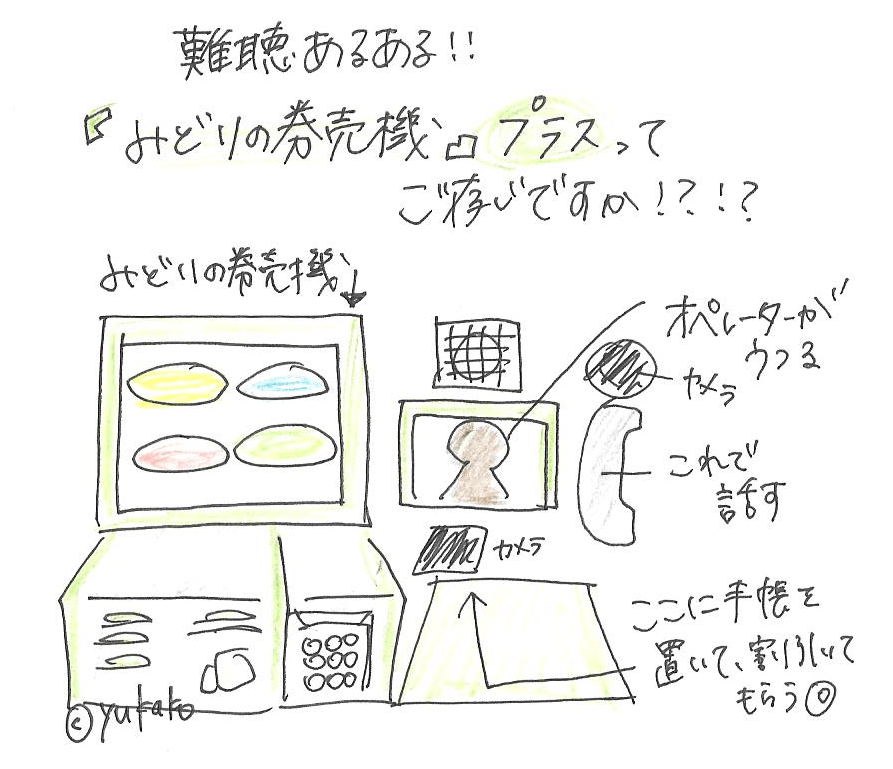 難聴あるある!!
『みどりの券売機』プラスって
ご存じですか!?!?
みどりの券売機
オペレーターが
うつる
カメラ
これで
話す
カメラ
ここに手帳を
置いて、割引いて
もらう◎
©yukako